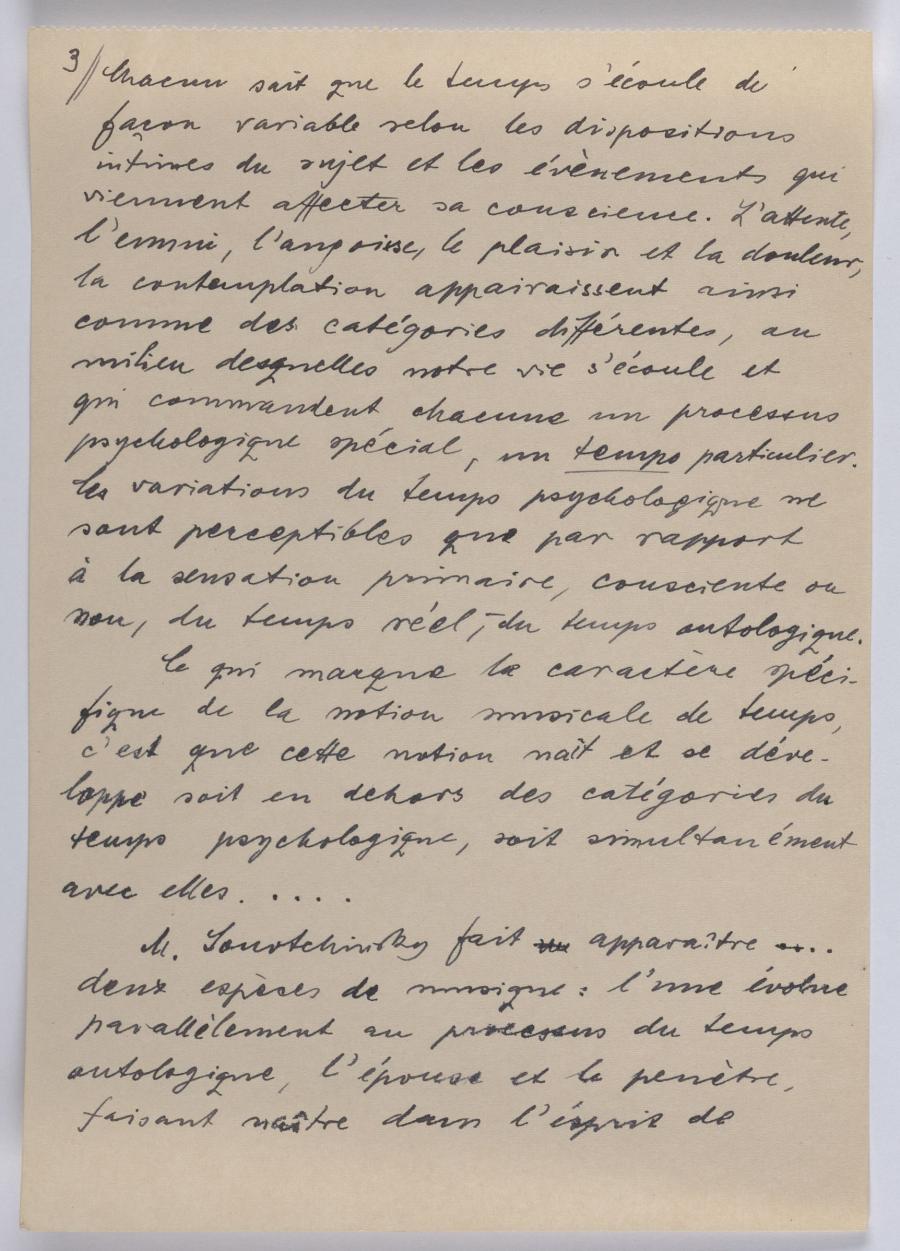 3// Chacun sait que le temps s'écoule de
façon variable selon les dispositions
intîmes du sujet et les évènements qui
viennent affecter sa conscience. L'attente,
l'ennui, l'angoisse, le plaisir et la douleur,
la contemplation appairaissent ainsi
comme des catégories différentes, au
milieu desquelles notre vie s'écoule et
qui commandent chacune un processus
psychologique spécial, un tempo particulier.
Les variations du temps psychologique ne
sont perceptibles que par rapport
à la sensation primaire, consciente ou
non, du temps réel, – du temps ontologique.
Ce qui marque le caractère spéci-
fique de la notion musicale de temps,
c'est que cette notion naît et se déve-
loppe soit en dehors des catégories du
temps psychologique, soit simultanément
avec elles. . . . .
M. Souvtchinsky fait un apparaître ....
deux espèces de musique : l'une évolue
parallèlement au processus du temps
ontologique, l'épouse et le penètre,
faisant naître dans l'ésprit de